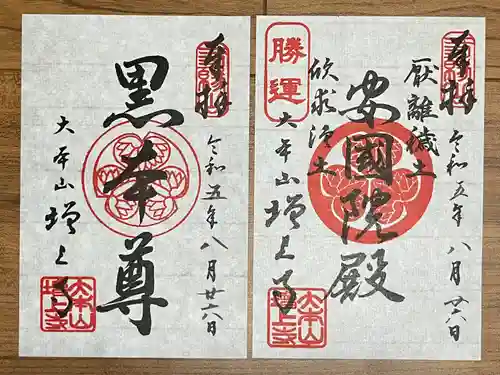 奉拝
令和五年八月廿六日
黒本尊
大本山増上寺
奉拝
令和五年八月廿六日
厭離穢土
安國院殿
欣求浄土
勝運
大本山増上寺